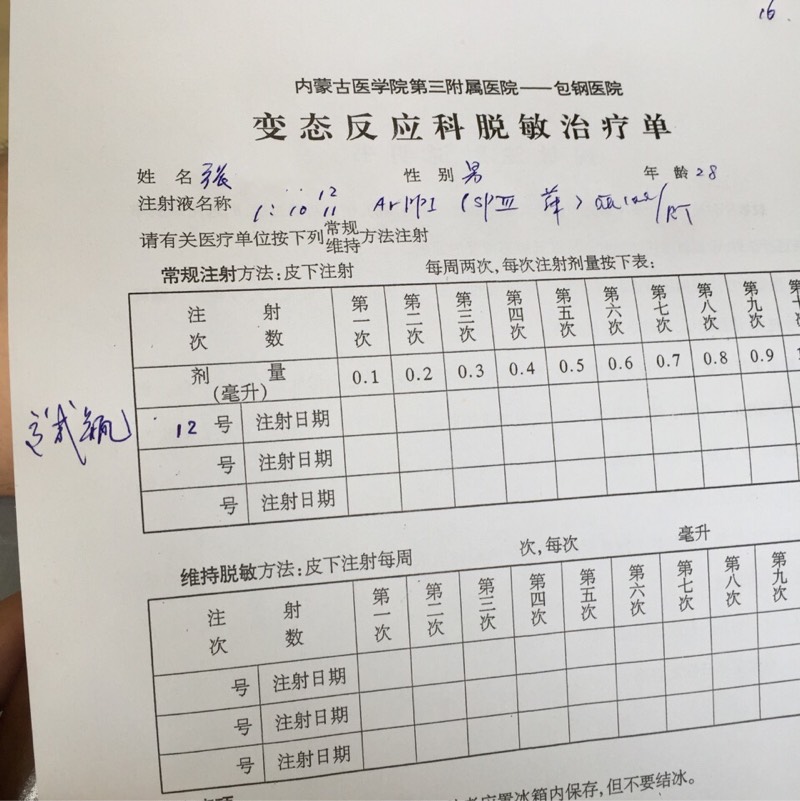 16
内蒙古医学院第三附属医院——包钢医院
变态反应科脱敏治疗单
姓 名 张 性 别 男 年 龄 28
12
注射液名称 1:10 11
请有关医疗单位按下列常规维持方法注射
常规注射方法:皮下注射 每周两次,每次注射剂量按下表:
注射次数 第一次 第二次 第三次 第四次 第五次 第六次 第七次 第八次 第九次
剂量(毫升) 0.1 0.2 0.3 0.4 0.5 0.6 0.7 0.8 0.9
试 12 号 注射日期
号 注射日期
号 注射日期
维持脱敏方法:皮下注射每周 次,每次 毫升
注射次数 第一次 第二次 第三次 第四次 第五次 第六次 第七次 第八次 第九次
号 注射日期
号 注射日期
号 注射日期
应置冰箱内保存,但不要结冰。